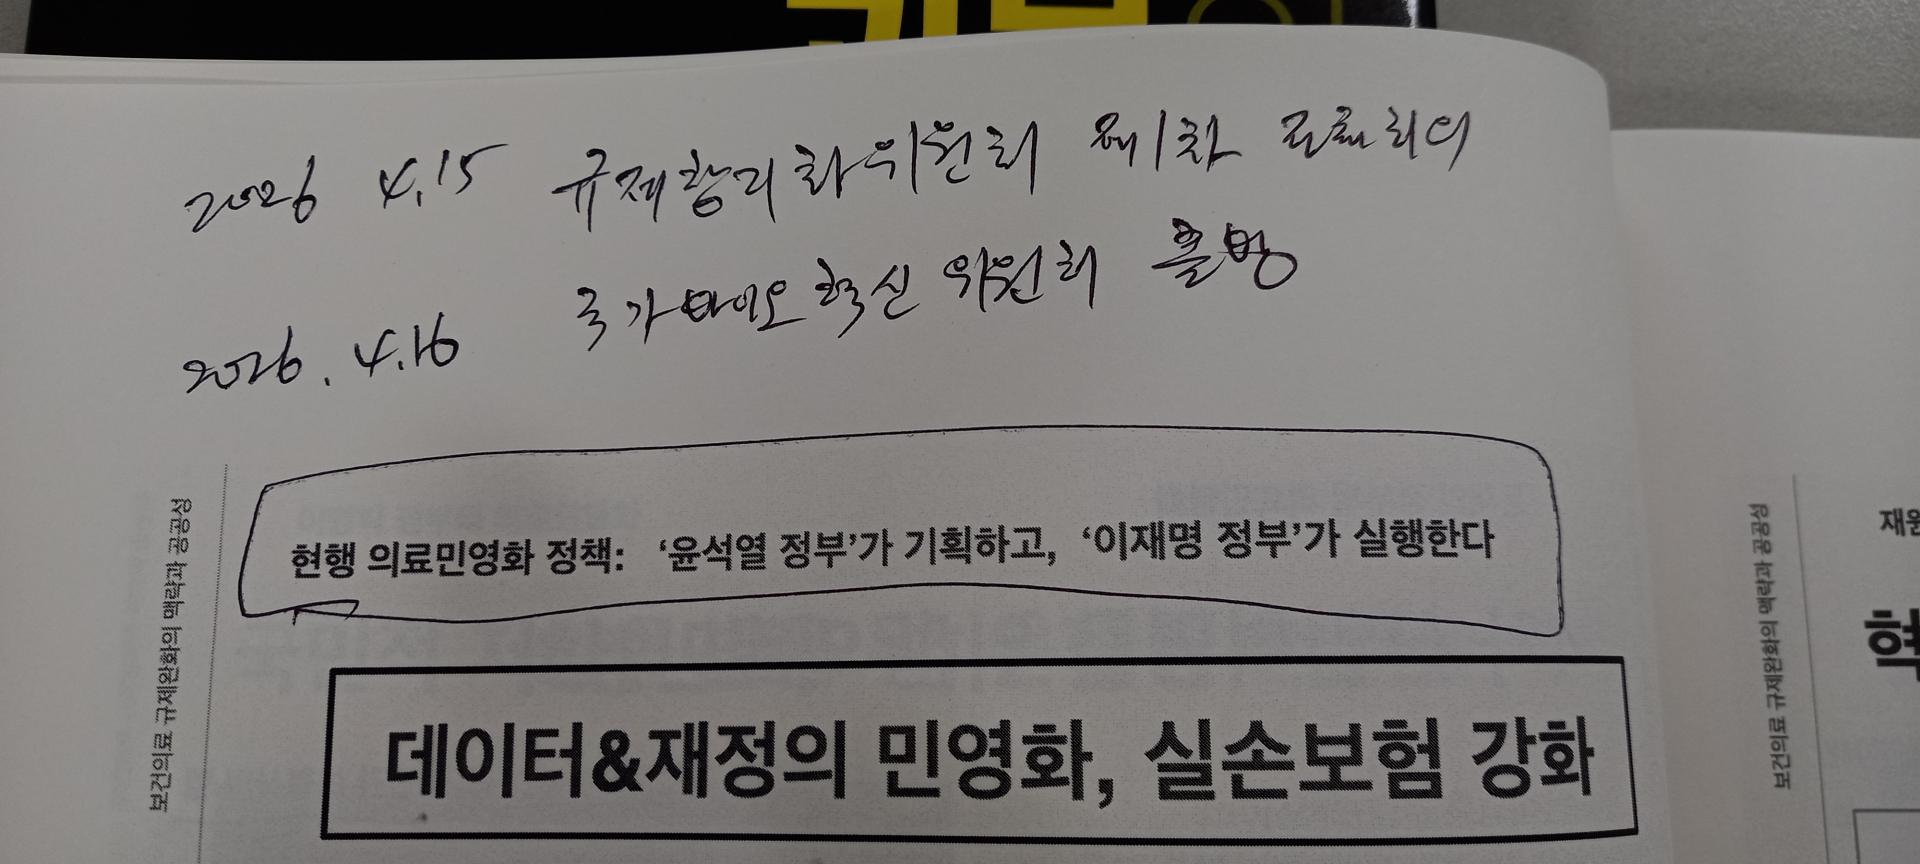 2026 4.15 규제합리화위원회 제1차 전체회의
2026. 4.16 국가바이오혁신위원회 출범
현행 의료민영화 정책: ‘윤석열 정부’가 기획하고, ‘이재명 정부’가 실행한다
데이터&재정의 민영화, 실손보험 강화
보건의료 규제완화의 맥락과 공공성
보건의료 규제완화의 맥락과 공공성
재원